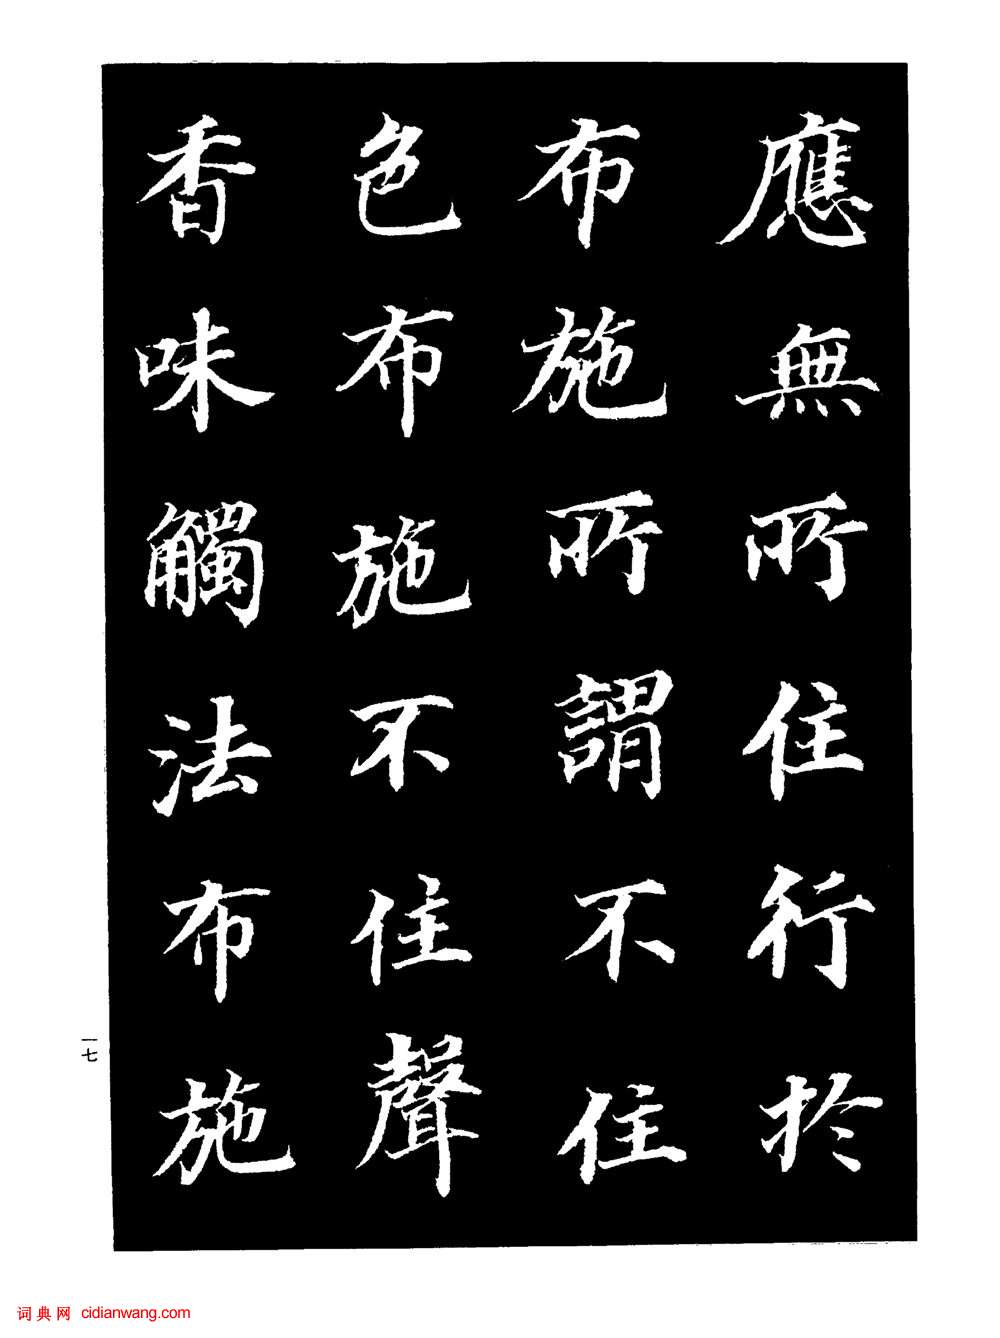 應無所住行於
布施所謂不住
色布施不住聲
香味觸法布施
一七
词典网 cidianwang.com